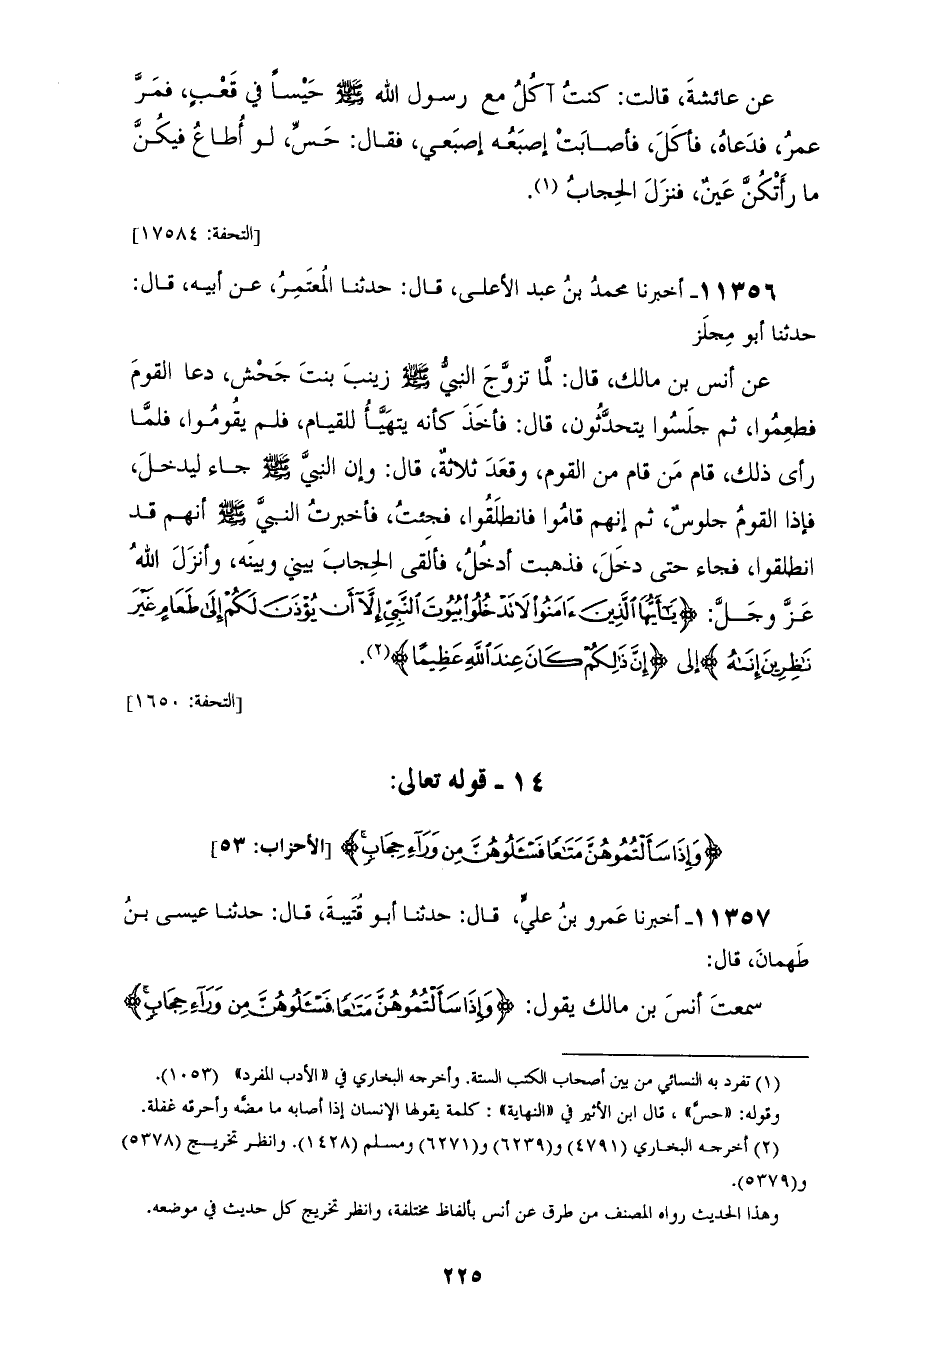 عن عائشةَ، قالت: كنتُ آكُلُ مع رسول الله ﷺ حَيْساً في قَعْبٍ، فمَرَّ
عمرُ، فدَعاهُ، فأكَلَ، فأصابَتْ إصبَعُه إصبَعي، فقال: حَسٍّ، لو أُطاعُ فيكُنَّ
ما رأَتْكُنَّ عَينٌ، فنزَلَ الحِجابُ (١).
[التحفة: ١٧٥٨٤]
١١٣٥٦ـ أخبرنا محمدُ بنُ عبد الأعلى، قال: حدثنا المُعتَمِرُ، عن أبيه، قال:
حدثنا أبو مِجلَز
عن أنس بن مالك، قال: لمَّا تزوَّجَ النبيُّ ﷺ زينبَ بنتَ جَحْش، دعا القومَ
فطعِمُوا، ثم جلَسُوا يتحدَّثُون، قال: فأخَذَ كأنه يتهَيَّأُ للقيام، فلم يقُومُوا، فلمَّا
رأى ذلك، قام مَن قام من القوم، وقعَدَ ثلاثةٌ، قال: وإن النبيَّ ﷺ جاء ليدخلَ،
فإذا القومُ جلوسٌ، ثم إنهم قامُوا فانطلَقُوا، فجئتُ، فأخبرتُ النبيَّ ﷺ أنهم قد
انطلقوا، فجاء حتى دخَلَ، فذهبت أدخُلُ، فألقى الحِجابَ بيني وبينَه، وأنزَلَ اللهُ
عَزَّ وجَلَّ: ﴿يَٰٓأَيُّهَا ٱلَّذِينَ ءَامَنُوا۟ لَا تَدْخُلُوا۟ بُيُوتَ ٱلنَّبِىِّ إِلَّآ أَن يُؤْذَنَ لَكُمْ إِلَىٰ طَعَامٍ غَيْرَ
نَٰظِرِينَ إِنَىٰهُ﴾ إلى ﴿إِنَّ ذَٰلِكُمْ كَانَ عِندَ ٱللَّهِ عَظِيمًا﴾(٢).
[التحفة: ١٦٥٠]
١٤ - قوله تعالى:
﴿وَإِذَا سَأَلْتُمُوهُنَّ مَتَٰعًا فَسْـَٔلُوهُنَّ مِن وَرَآءِ حِجَابٍ﴾ [الأحزاب: ٥٣]
١١٣٥٧ـ أخبرنا عَمرو بنُ عليٍّ، قال: حدثنا أبو قُتَيبةَ، قال: حدثنا عيسى بنُ
طَهمانَ، قال:
سمعتَ أنسَ بن مالك يقول: ﴿وَإِذَا سَأَلْتُمُوهُنَّ مَتَٰعًا فَسْـَٔلُوهُنَّ مِن وَرَآءِ حِجَابٍ﴾
(١) تفرد به النسائي من بين أصحاب الكتب الستة. وأخرجه البخاري في «الأدب المفرد» (١٠٥٣).
وقوله: «حسَّ» ، قال ابن الأثير في «النهاية» : كلمة يقولها الإنسان إذا أصابه ما مضَّه وأحرقه غفلة.
(٢) أخرجه البخاري (٤٧٩١) و(٦٢٣٩) و(٦٢٧١) ومسلم (١٤٢٨). وانظر تخريج (٥٣٧٨)
و(٥٣٧٩).
وهذا الحديث رواه المصنف من طرق عن أنس بألفاظ مختلفة، وانظر تخريج كل حديث في موضعه.
٢٢٥